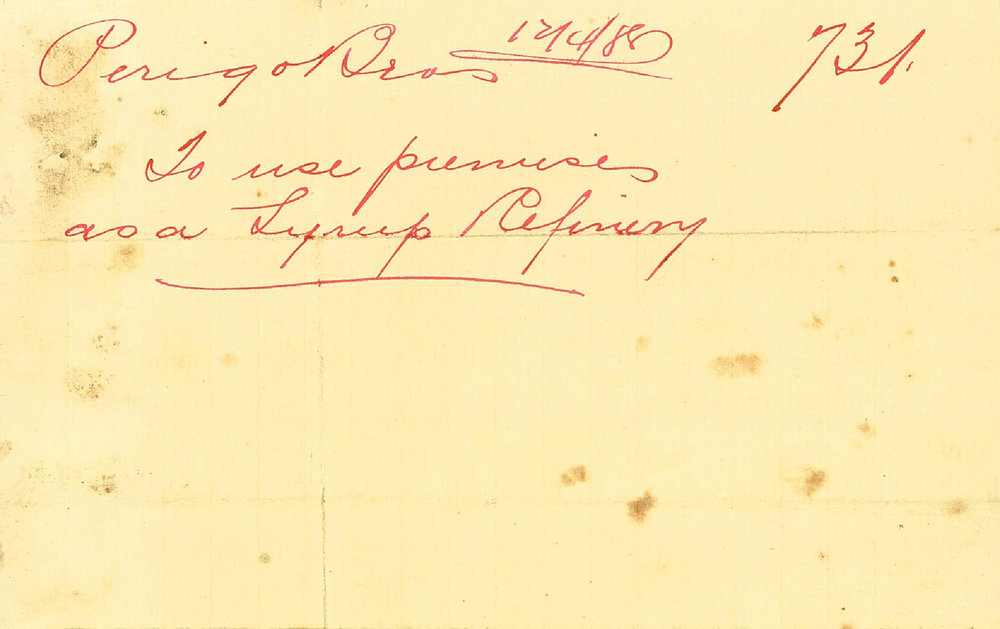 Perigo Bros 17/4/88 731.
To use premises
as a Syrup Refinery